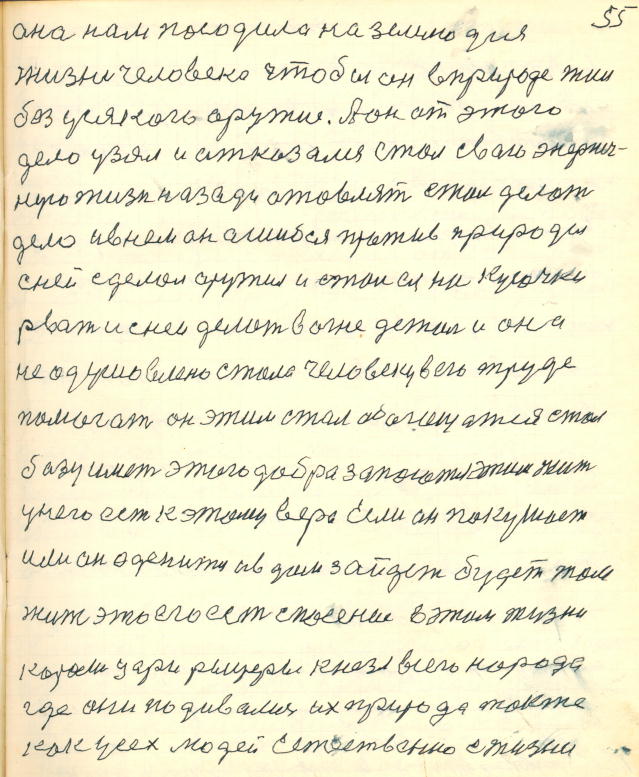 55
она нам посодила на землю для
жизни человека чтобы он в природе жил
без усякого оружие. А он от этого
дело узял и отказался стал сваю энергич-
ную жизн назади отовлят стал делат
дело и в нем он ошибся против природы
с ней сделал оружия и стал ея на кусочки
рват и с неи делат в огне детал и она
не одушовлено стала человеку в его труде
помогат он этим стал обогощатся стал
базу имет этого добра запасатся этим жит
у него ест к этому вера Если он покушает
или он оденится в дом зайдет будет там
жит это его ест спосение в этом жизни
короли цари рыцеры князя всего народа
где они подивалис их природа также
как усех людей Естественно с жизни